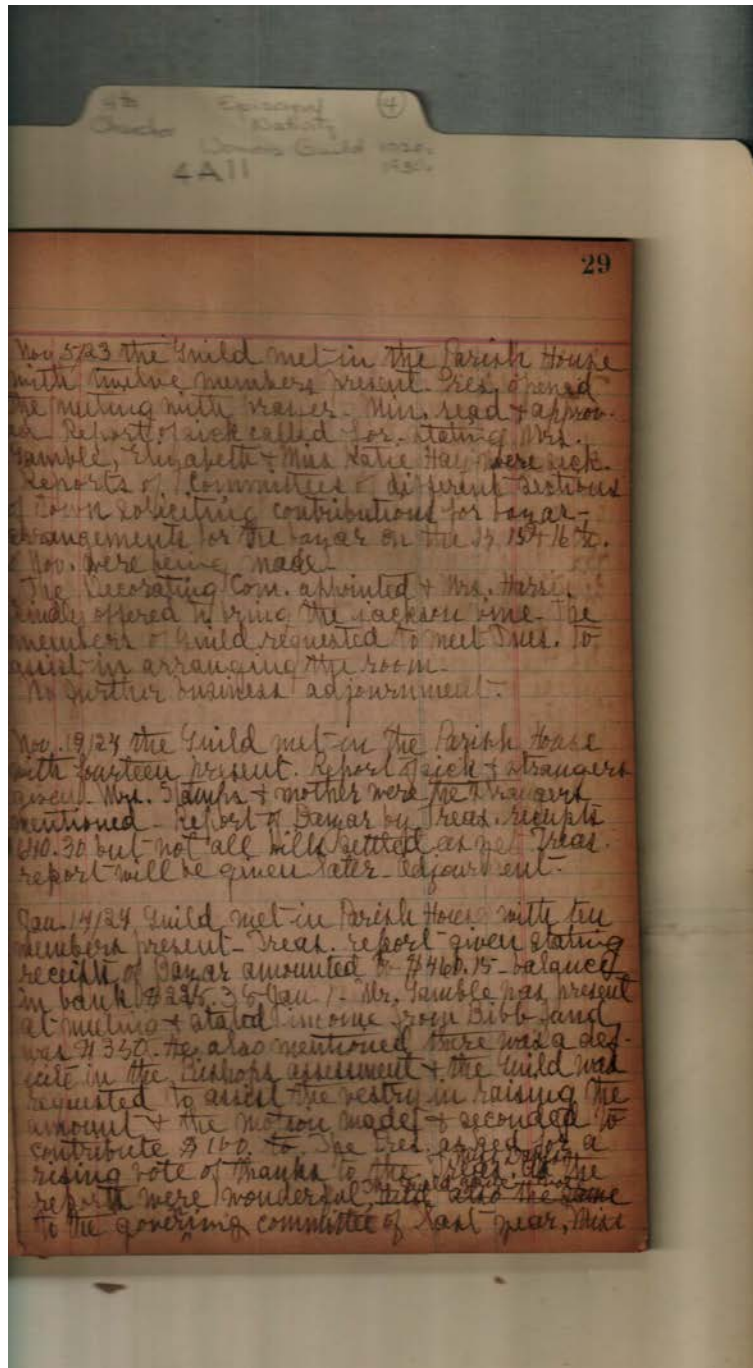 Episcopal ④
Church Nativity
Womans Guild 1920s
4A11 1930s
29
Nov 5/23 the Guild met in the Parish House
with twelve members present. Pres. opened
the meeting with prayer - Min. read & approv-
ed. Report of sick called for. stating Mrs.
Gamble, Elizabeth & Miss Katie Hay were sick.
Reports of Committees of different sections
of Town soliciting contributions for bazar -
arrangements for the bazar on the 15 & 16 th.
Nov. were being made -
The Decorating Com. appointed & Mrs.
kindly offered to bring the jackson vine - The
members of Guild requested to meet Tues. to
assist in arranging the room -
No further business adjournment -
Nov. 19/24 the Guild met in the Parish House
with fourteen present. Report of sick & strangers
given - Mrs. Stamps & mother were the strangers
mentioned - Report of Bazar by Treas. receipts
440.30 but not all bills settled as yet Treas.
report will be given later - adjourment -
Jan. 14/24 Guild met in Parish House with ten
members present - Treas. report given stating
receipts of Bazar amounted to $460.15 - balance
in bank Jan 1 - Mr. Gamble was present
at meeting & stated income from Bibb fund
was $350 - he also mentioned there was a def-
icite in the Bishops assessment & the Guild was
requested to assist the vestry in raising the
amount & the motion made & seconded to
contribute $100. to. The Pres. asked for a
rising vote of thanks to the Treas. as the
reports were wonderful, and also the same
to the governing committee of last year, Miss